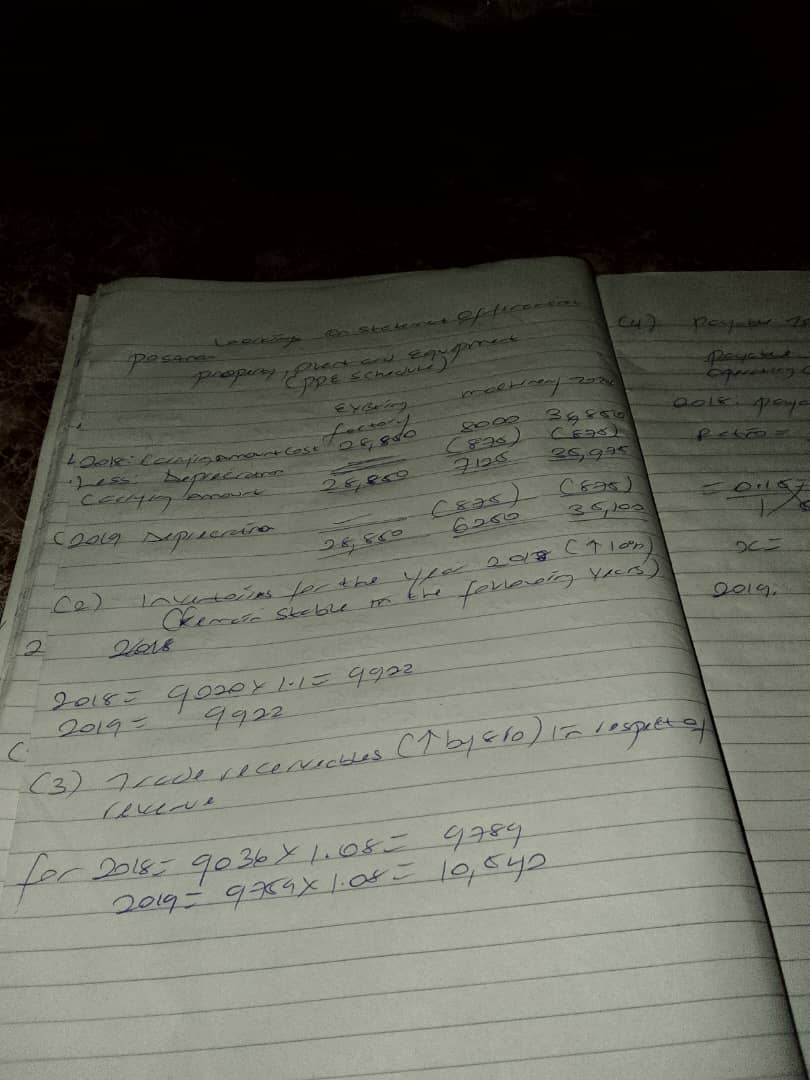 Workings on Statement of financial
position
property, plant and Equipment
(PPE Schedule)
Existing factory machinery total
2018: Carrying amount cost 28,850 8000 36,850
Less: Depreciation — (875) (875)
Carrying amount 28,850 7125 35,975
(2019 Depreciation — (875) (875)
28,850 6250 35,100
(2) Inventories for the year 2018 (↑10%)
(Remain stable in the following years)
2 2018
2018= 9020 x 1.1= 9922
2019= 9922
C
(3) Trade receivables (↑ by 8%) in respect of
revenue
for 2018= 9036 x 1.08= 9789
2019= 9759 x 1.08= 10,540
(4)
2018:
Ratio =
= 0.15
x=
2019.